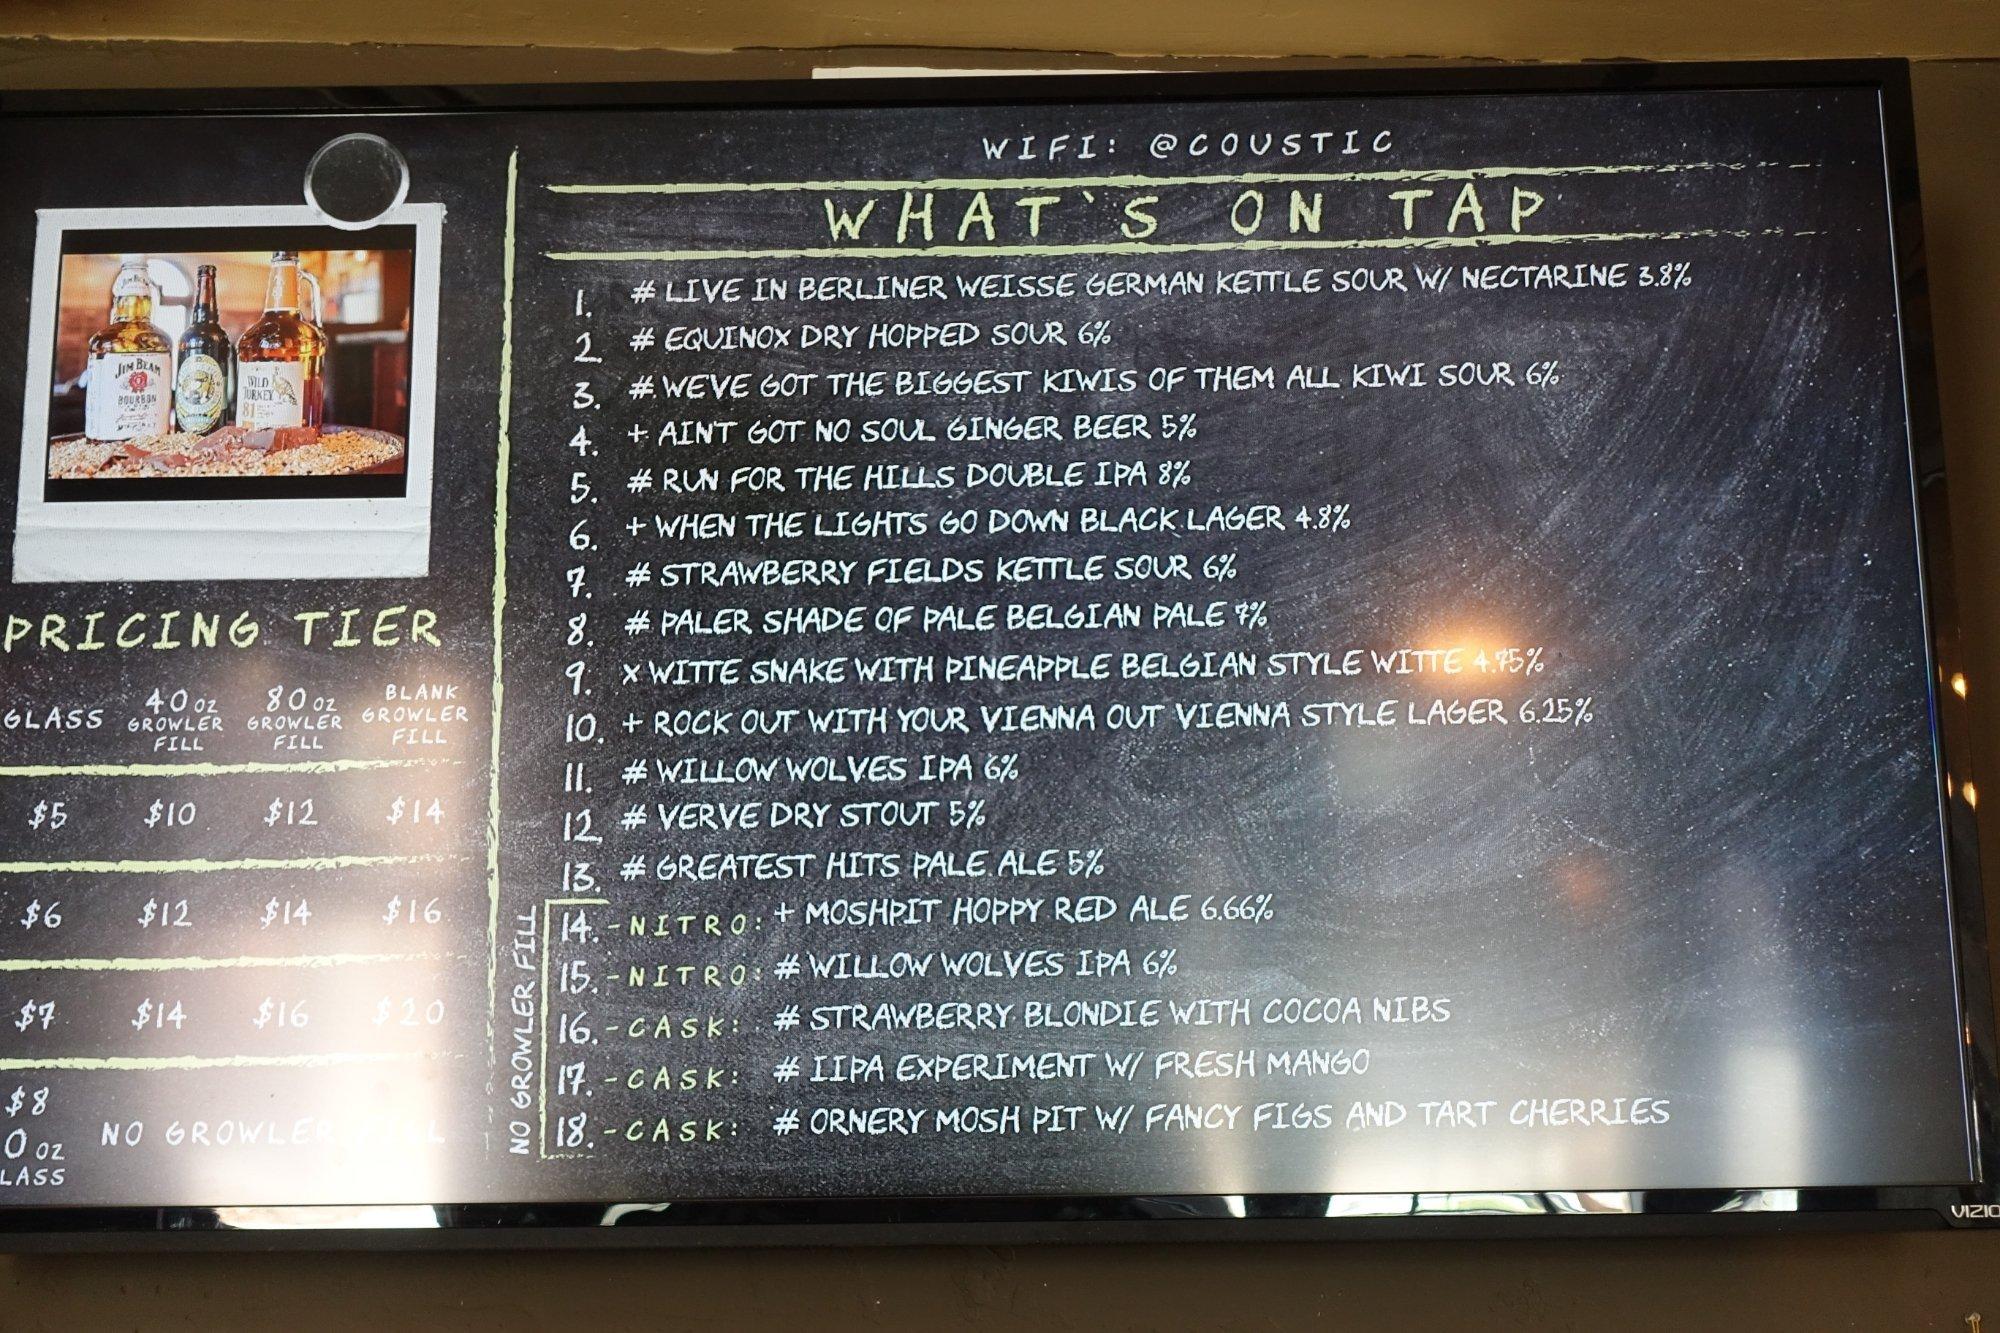 WIFI: @COUSTIC
WHAT'S ON TAP
1. # LIVE IN BERLINER WEISSE GERMAN KETTLE SOUR W/ NECTARINE 3.8%
2. # EQUINOX DRY HOPPED SOUR 6%
3. # WE'VE GOT THE BIGGEST KIWIS OF THEM ALL KIWI SOUR 6%
4. + AIN'T GOT NO SOUL GINGER BEER 5%
5. # RUN FOR THE HILLS DOUBLE IPA 8%
6. + WHEN THE LIGHTS GO DOWN BLACK LAGER 4.8%
7. # STRAWBERRY FIELDS KETTLE SOUR 6%
8. # PALER SHADE OF PALE BELGIAN PALE 7%
9. x WITTE SNAKE WITH PINEAPPLE BELGIAN STYLE WITTE 4.75%
10. + ROCK OUT WITH YOUR VIENNA OUT VIENNA STYLE LAGER 6.25%
11. # WILLOW WOLVES IPA 6%
12. # VERVE DRY STOUT 5%
13. # GREATEST HITS PALE ALE 5%
NO GROWLER FILL
14. -NITRO: + MOSHPIT HOPPY RED ALE 6.66%
15. -NITRO: # WILLOW WOLVES IPA 6%
16. -CASK: # STRAWBERRY BLONDIE WITH COCOA NIBS
17. -CASK: # IIPA EXPERIMENT W/ FRESH MANGO
18. -CASK: # ORNERY MOSH PIT W/ FANCY FIGS AND TART CHERRIES
JIM BEAM
BOURBON
WILD
TURKEY
81
PRICING TIER
GLASS
40 OZ
GROWLER
FILL
80 OZ
GROWLER
FILL
BLANK
GROWLER
FILL
$5 $10 $12 $14
$6 $12 $14 $16
$7 $14 $16 $20
$8
0 OZ
LASS
NO GROWLER FILL
VIZIO